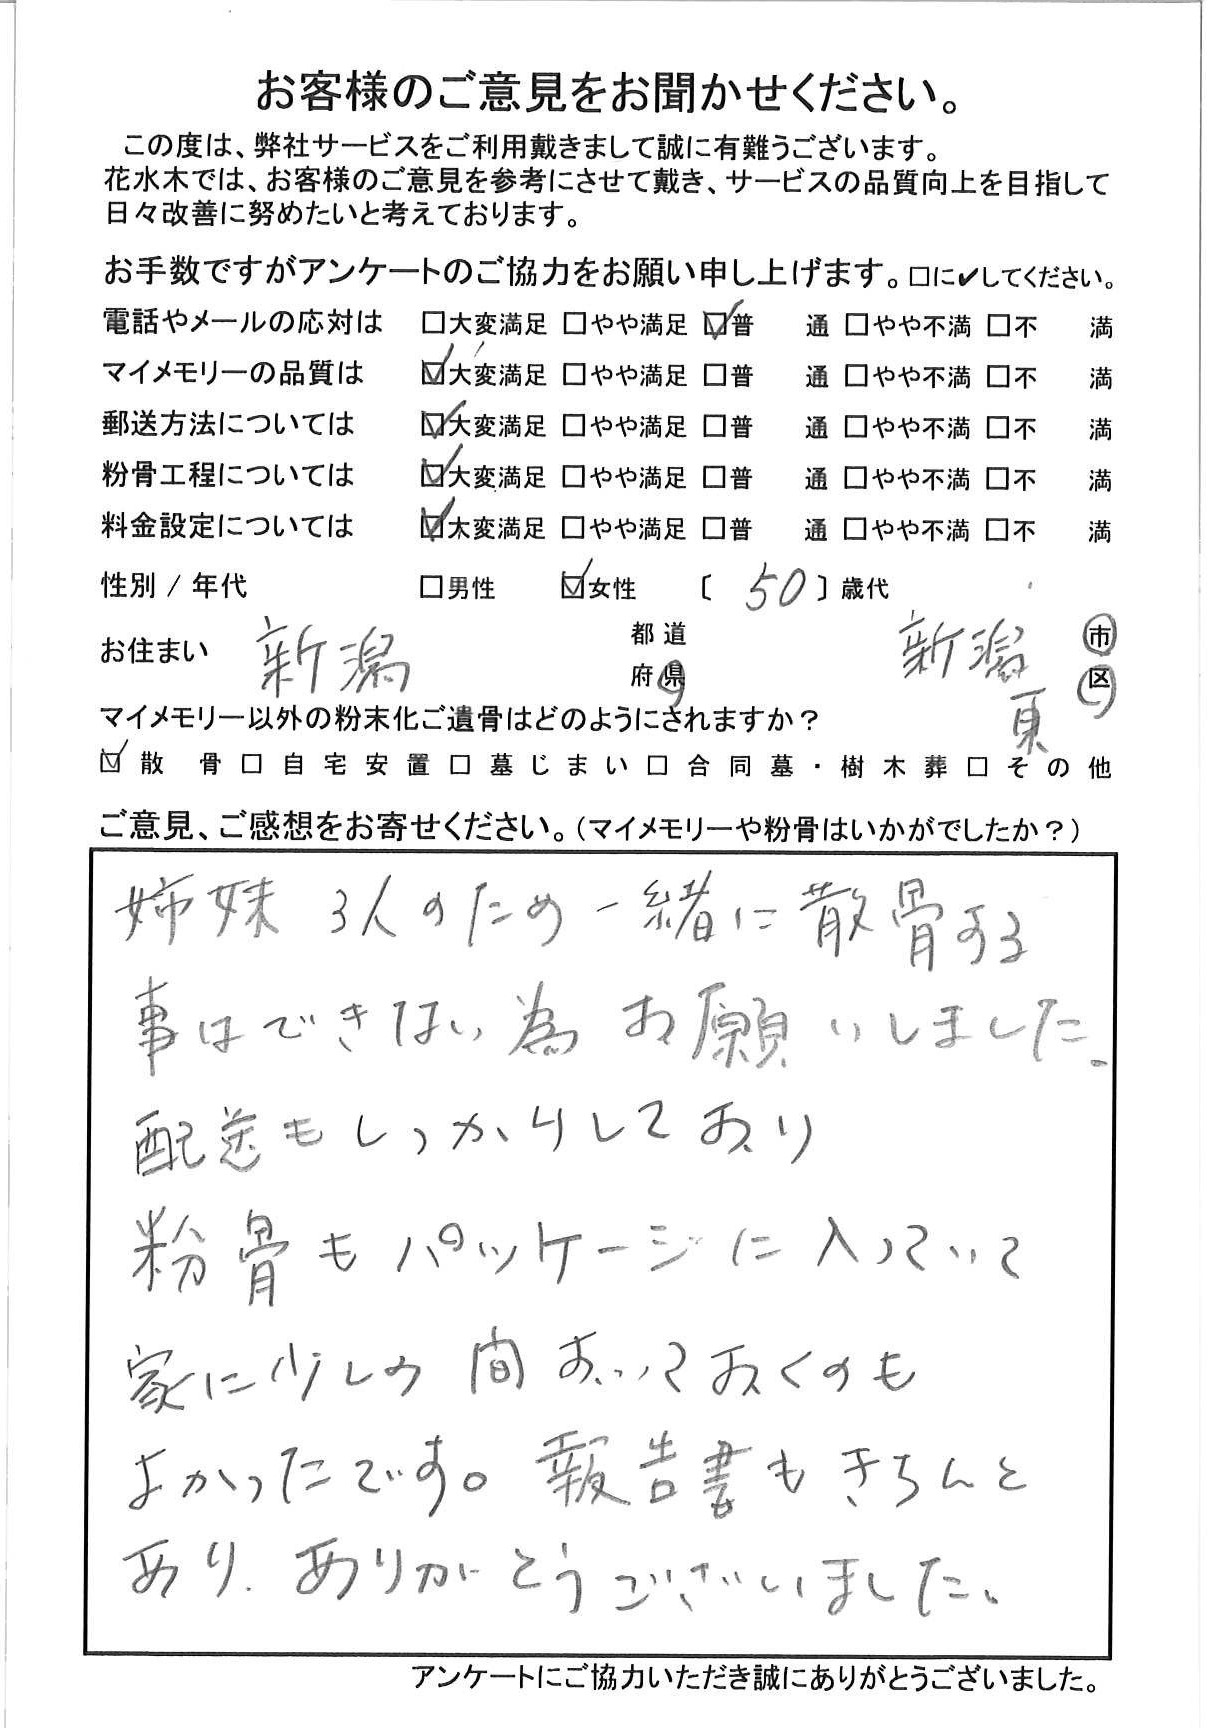 お客様のご意見をお聞かせください。
この度は、弊社サービスをご利用戴きまして誠に有難うございます。
花水木では、お客様のご意見を参考にさせて戴き、サービスの品質向上を目指して
日々改善に努めたいと考えております。
お手数ですがアンケートのご協力をお願い申し上げます。□に✔してください。
電話やメールの応対は □大変満足 □やや満足 ☑普 通 □やや不満 □不 満
マイメモリーの品質は ☑大変満足 □やや満足 □普 通 □やや不満 □不 満
郵送方法については ☑大変満足 □やや満足 □普 通 □やや不満 □不 満
粉骨工程については ☑大変満足 □やや満足 □普 通 □やや不満 □不 満
料金設定については ☑大変満足 □やや満足 □普 通 □やや不満 □不 満
性別 / 年代 □男性 ☑女性 〔 50 〕歳代
お住まい 新潟 都道府県 新潟 市区
東
マイメモリー以外の粉末化ご遺骨はどのようにされますか？
☑散 骨 □自宅安置 □墓じまい □合同墓・樹木葬 □その他
ご意見、ご感想をお寄せください。（マイメモリーや粉骨はいかがでしたか？）
姉妹 3人のため 一緒に散骨する
事はできない為 お願いしました。
配送もしっかりしており
粉骨もパッケージに入っていて
家に少しの間おいておくのも
よかったです。報告書もきちんと
あり、ありがとうございました。
アンケートにご協力いただき誠にありがとうございました。